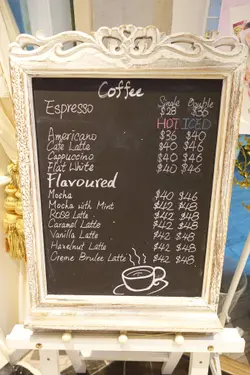 Coffee
Espresso Single Double
$28 $36
HOT ICED
Americano $36 $40
Cafe Latte $40 $46
Cappuccino $40 $46
Flat White $40 $46
Flavoured
Mocha $40 $46
Mocha with Mint $42 $48
Rose Latte $42 $48
Caramel Latte $42 $48
Vanilla Latte $42 $48
Hazelnut Latte $42 $48
Creme Brulee Latte $42 $48